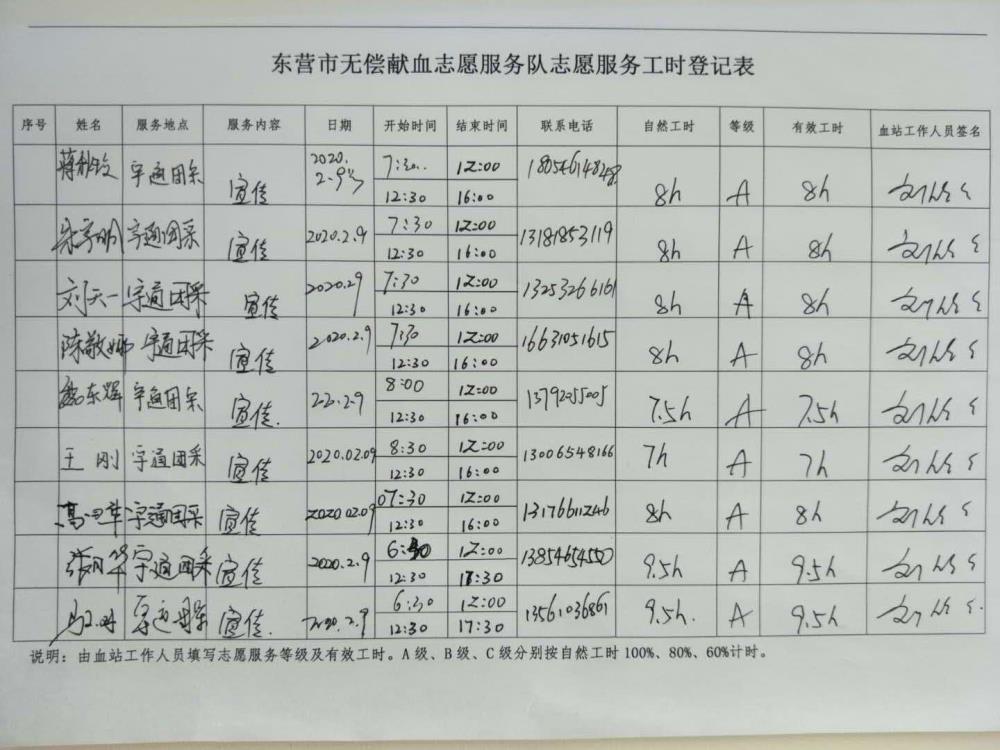 东营市无偿献血志愿服务队志愿服务工时登记表
序号 姓名 服务地点 服务内容 日期 开始时间 结束时间 联系电话 自然工时 等级 有效工时 血站工作人员签名
宇通团采 宣传 2020.2.9 7:30 12:00 8h A 8h
12:30 16:00
宇通团采 宣传 2020.2.9 7:30 12:00 13181853119 8h A 8h
12:30 16:00
刘天一 宇通团采 宣传 2020.2.9 7:30 12:00 13253266161 8h A 8h
12:30 16:00
陈敬娜 宇通团采 宣传 2020.2.9 7:30 12:00 16631051615 8h A 8h
12:30 16:00
魏东辉 宇通团采 宣传. 8:00 12:00 13792055005 7.5h A 7.5h
12:30 16:00
王刚 宇通团采 宣传 2020.02.09 8:30 12:00 13006548166 7h A 7h
12:30 16:00
宇通团采 宣传 2020.02.09 07:30 12:00 13176611246 8h A 8h
12:30 16:00
宇通团采 宣传 2020.2.9 6:30 12:00 13854654550 9.5h A 9.5h
12:30 17:30
宇通团采 宣传. 2020.2.9 6:30 12:00 13561036861 9.5h. A 9.5h
12:30 17:30
说明：由血站工作人员填写志愿服务等级及有效工时。A级、B级、C级分别按自然工时100%、80%、60%计时。